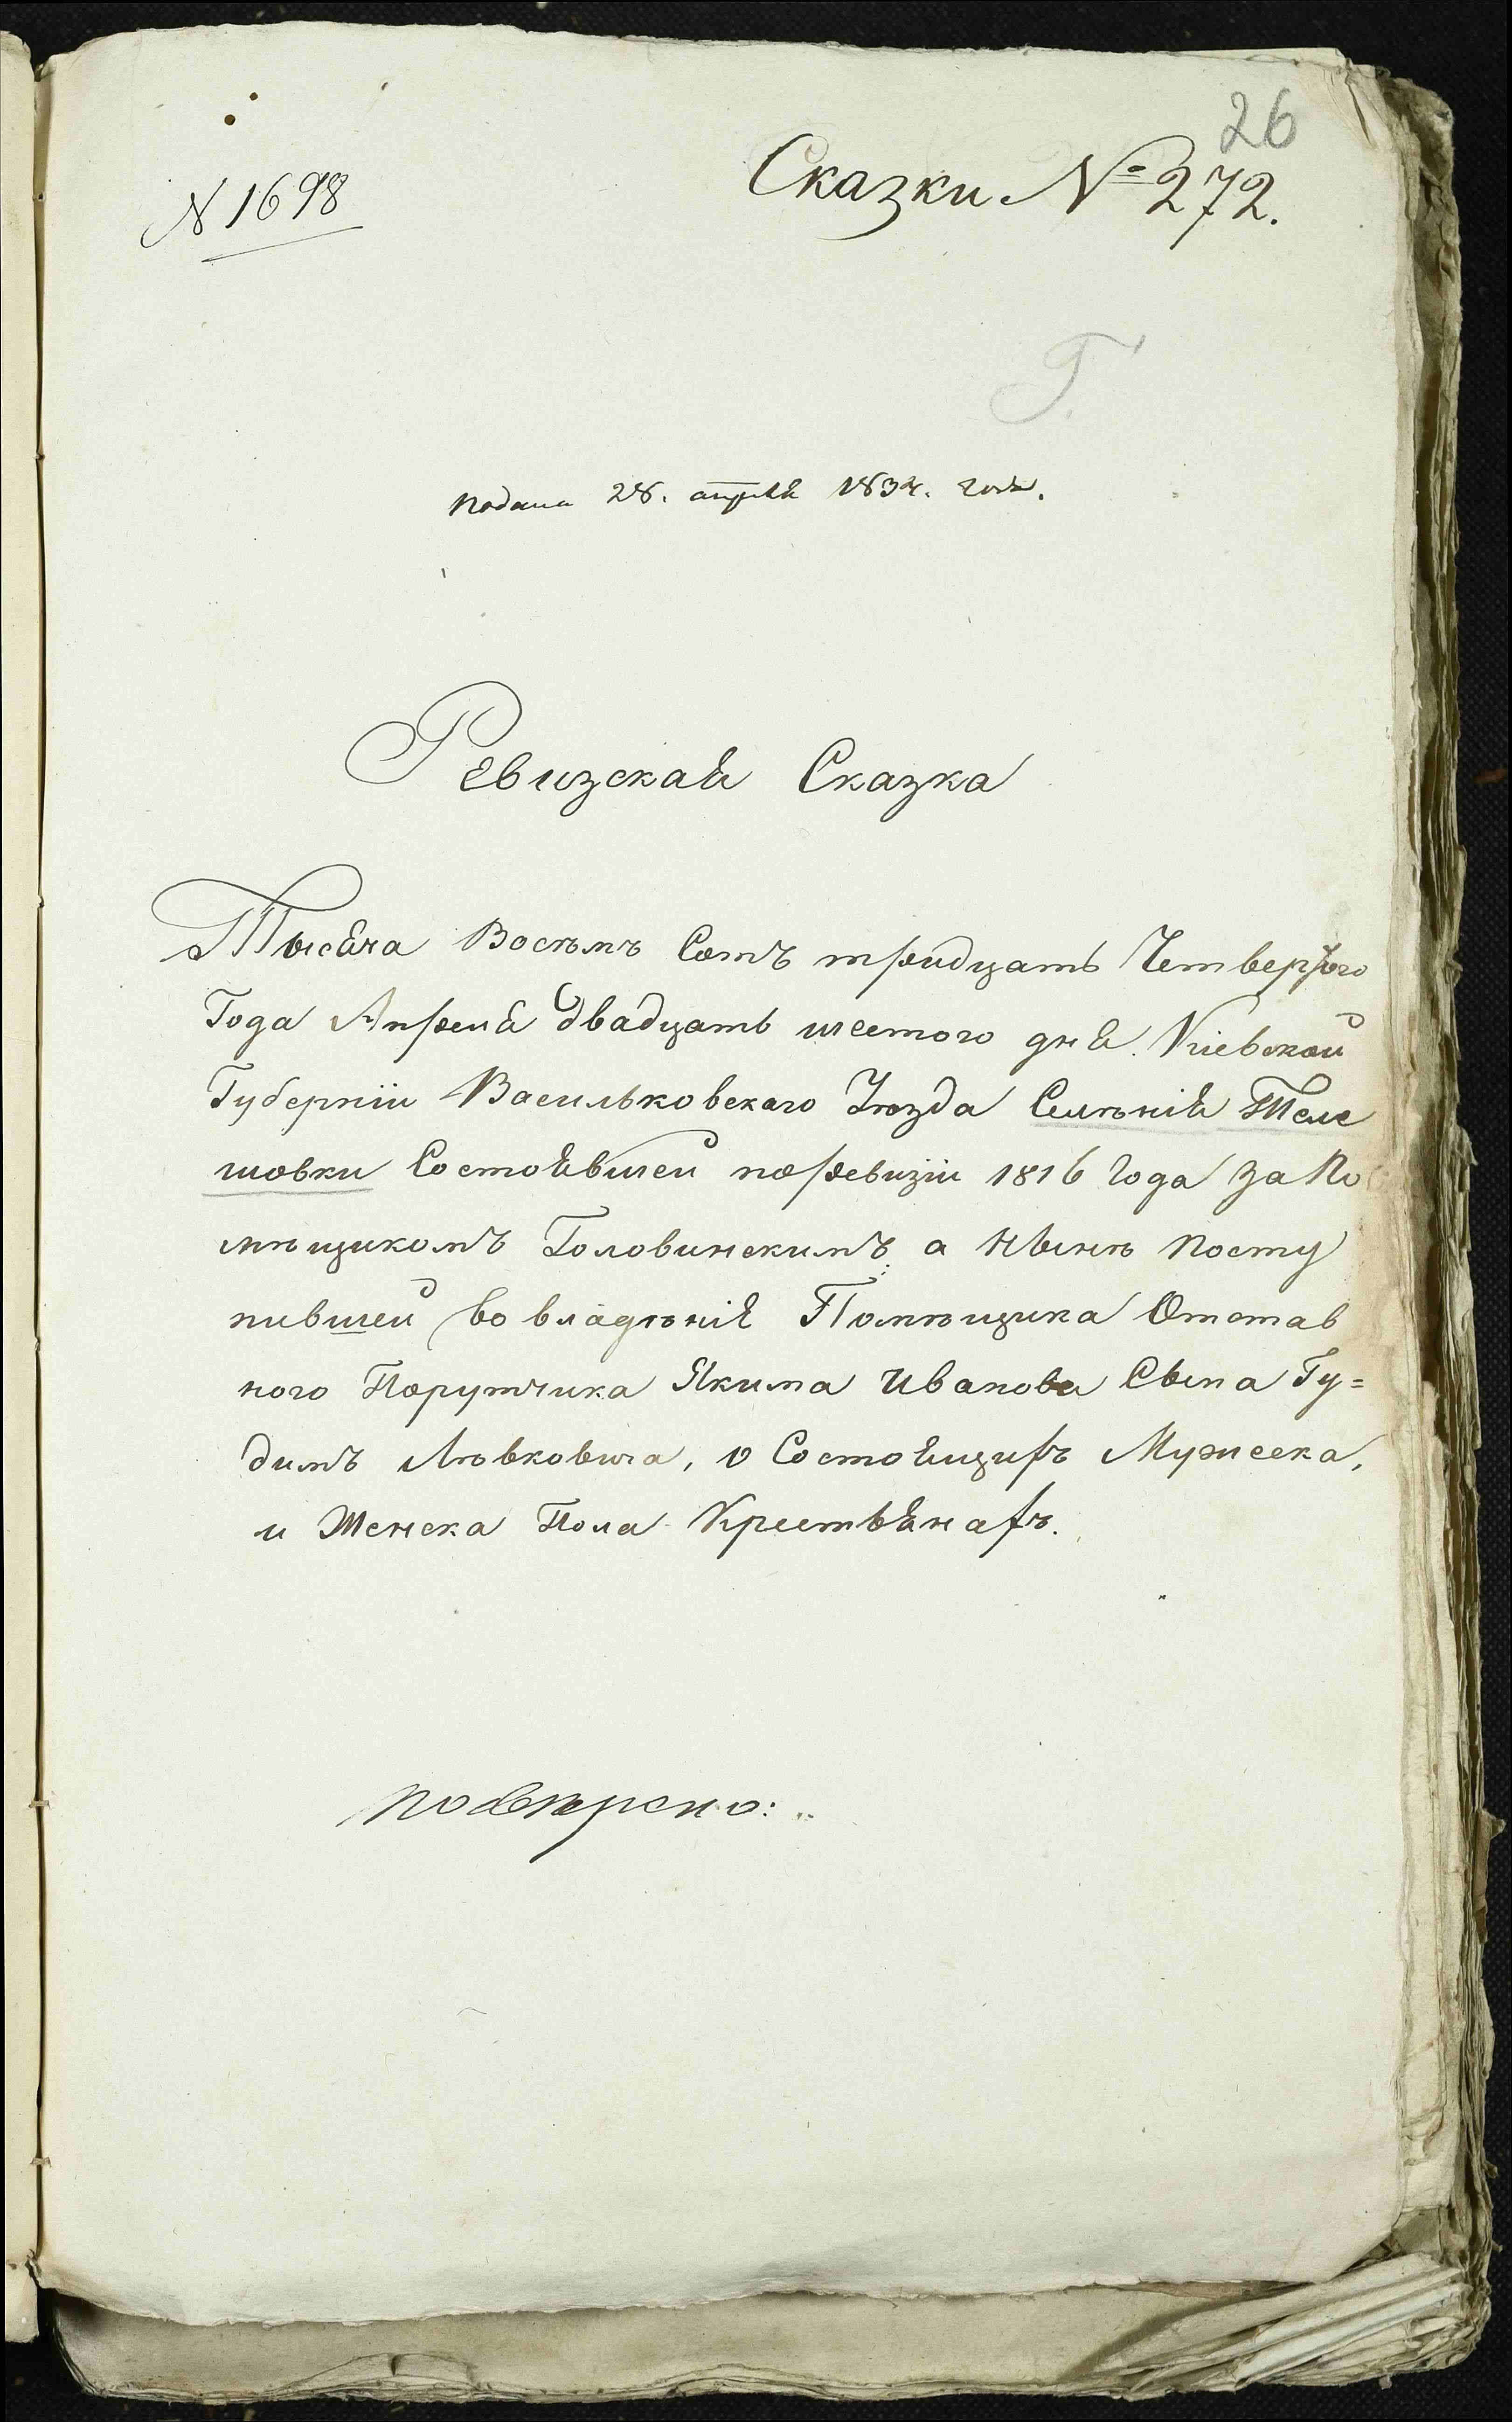 26
N 1698
Сказки № 272.
Г.
подана 28. апреля 1834. года.
Ревизская Сказка
Тысяча Восѣмъ Сотъ тридцать Четвертого
Года Апреля двадцать шестого дня. Кіевской
Губерніи Васильковскаго Уѣзда Селѣнія Теле
шовки Состоявшей поревизіи 1816 Года За По
мѣщикомъ Головинскимъ а Нынѣ Посту
пившей во владѣнія Помѣщика Отстав
ного Порутчика Якима Иванова Сына Гу=
димъ Лѣвковича, о Состоящихъ Мужеска,
и Женска Пола Крестьянахъ.
повѣрено: